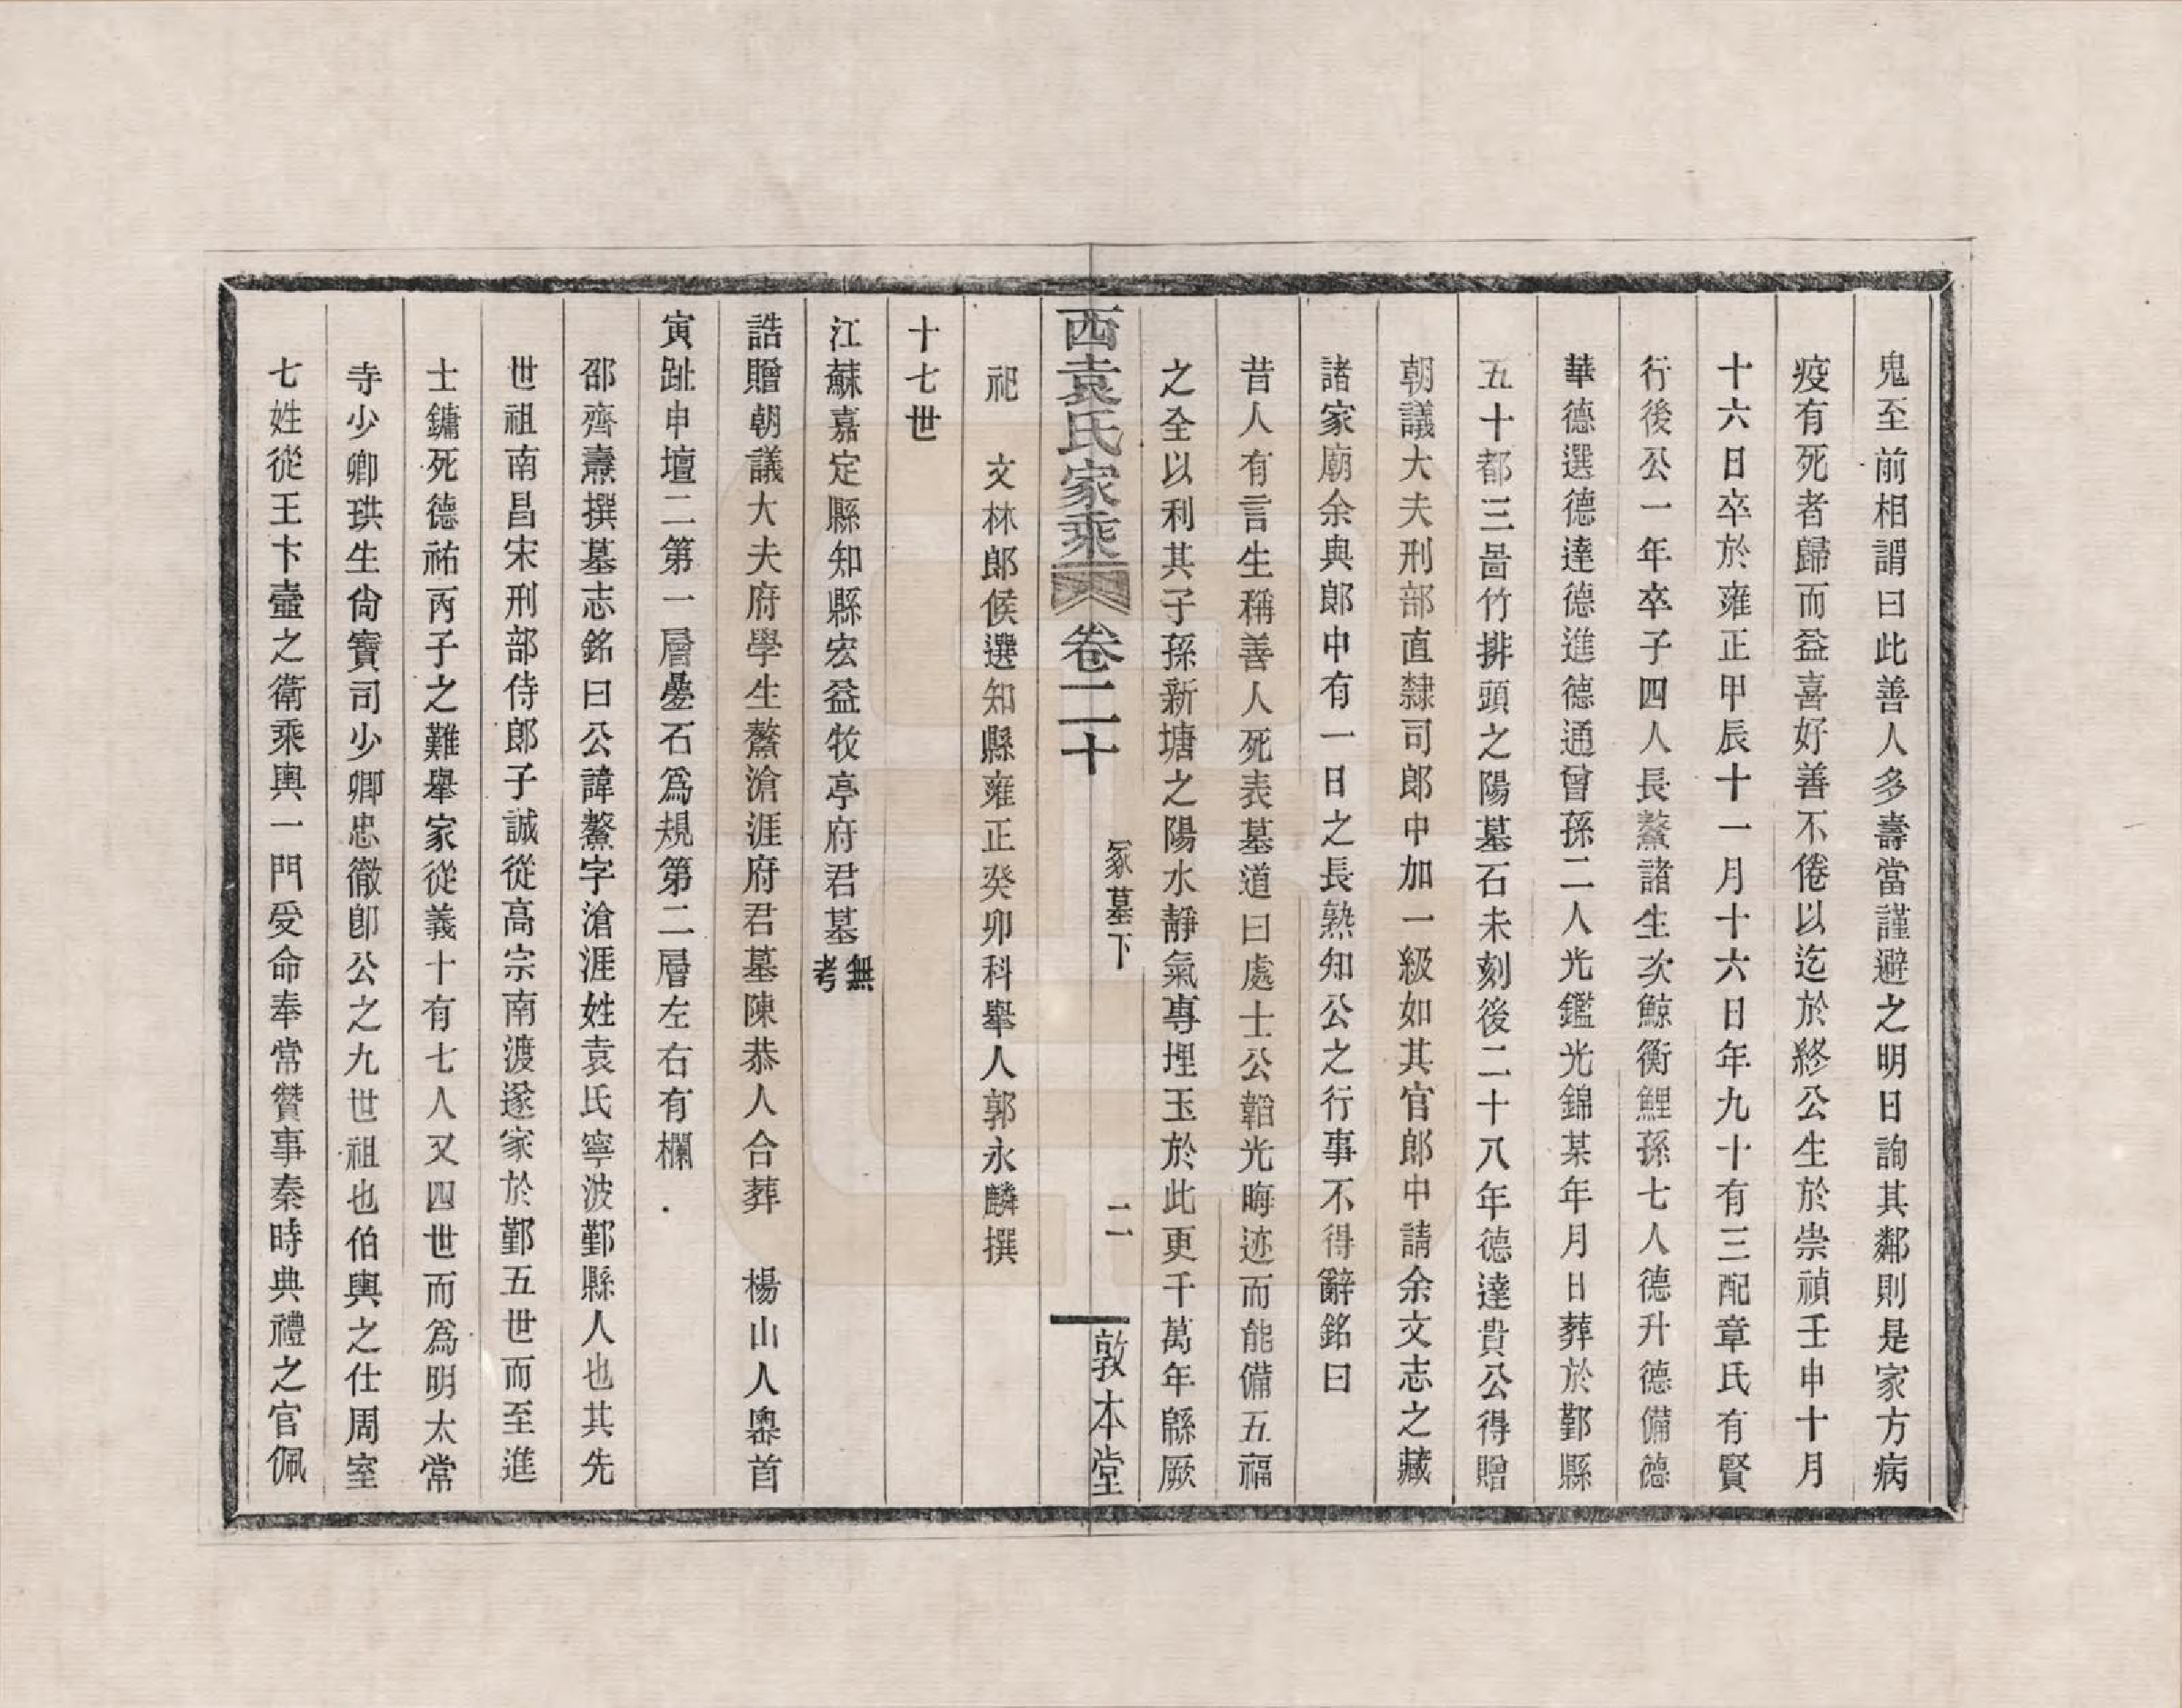 鬼至前相謂曰此善人多壽當謹避之明日詢其鄰則是家方病
疫有死者歸而益喜好善不倦以迄於終公生於崇禎壬申十月
十六日卒於雍正甲辰十一月十六日年九十有三配章氏有賢
行後公一年卒子四人長鰲諸生次鯨衡鯉孫七人德升德備德
華德選德達德進德通曾孫二人光鑑光錦某年月日葬於鄞縣
五十都三啚竹排頭之陽墓石未刻後二十八年德達貴公得贈
朝議大夫刑部直隸司郎中加一級如其官郎中請余文志之藏
諸家廟余與郎中有一日之長熟知公之行事不得辭銘曰
昔人有言生稱善人死表墓道曰處士公韜光晦迹而能備五福
之全以利其子孫新塘之陽水靜氣專埋玉於此更千萬年緜厥
西袁氏家乘 卷二十 冢墓下 二 敦本堂
祀　文林郎候選知縣雍正癸卯科舉人郭永麟撰
十七世
江蘇嘉定縣知縣宏益牧亭府君墓無考
誥贈朝議大夫府學生鰲滄涯府君墓陳恭人合葬　楊山人嶴首
寅趾申壇二第一層壘石為規第二層左右有欄
邵齊燾撰墓志銘曰公諱鰲字滄涯姓袁氏寧波鄞縣人也其先
世祖南昌宋刑部侍郎子誠從高宗南渡遂家於鄞五世而至進
士鏞死德祐丙子之難舉家從義十有七人又四世而為明太常
寺少卿珙生尙寶司少卿忠徹卽公之九世祖也伯輿之仕周室
七姓從王卞壼之衛乘輿一門受命奉常贊事秦時典禮之官佩